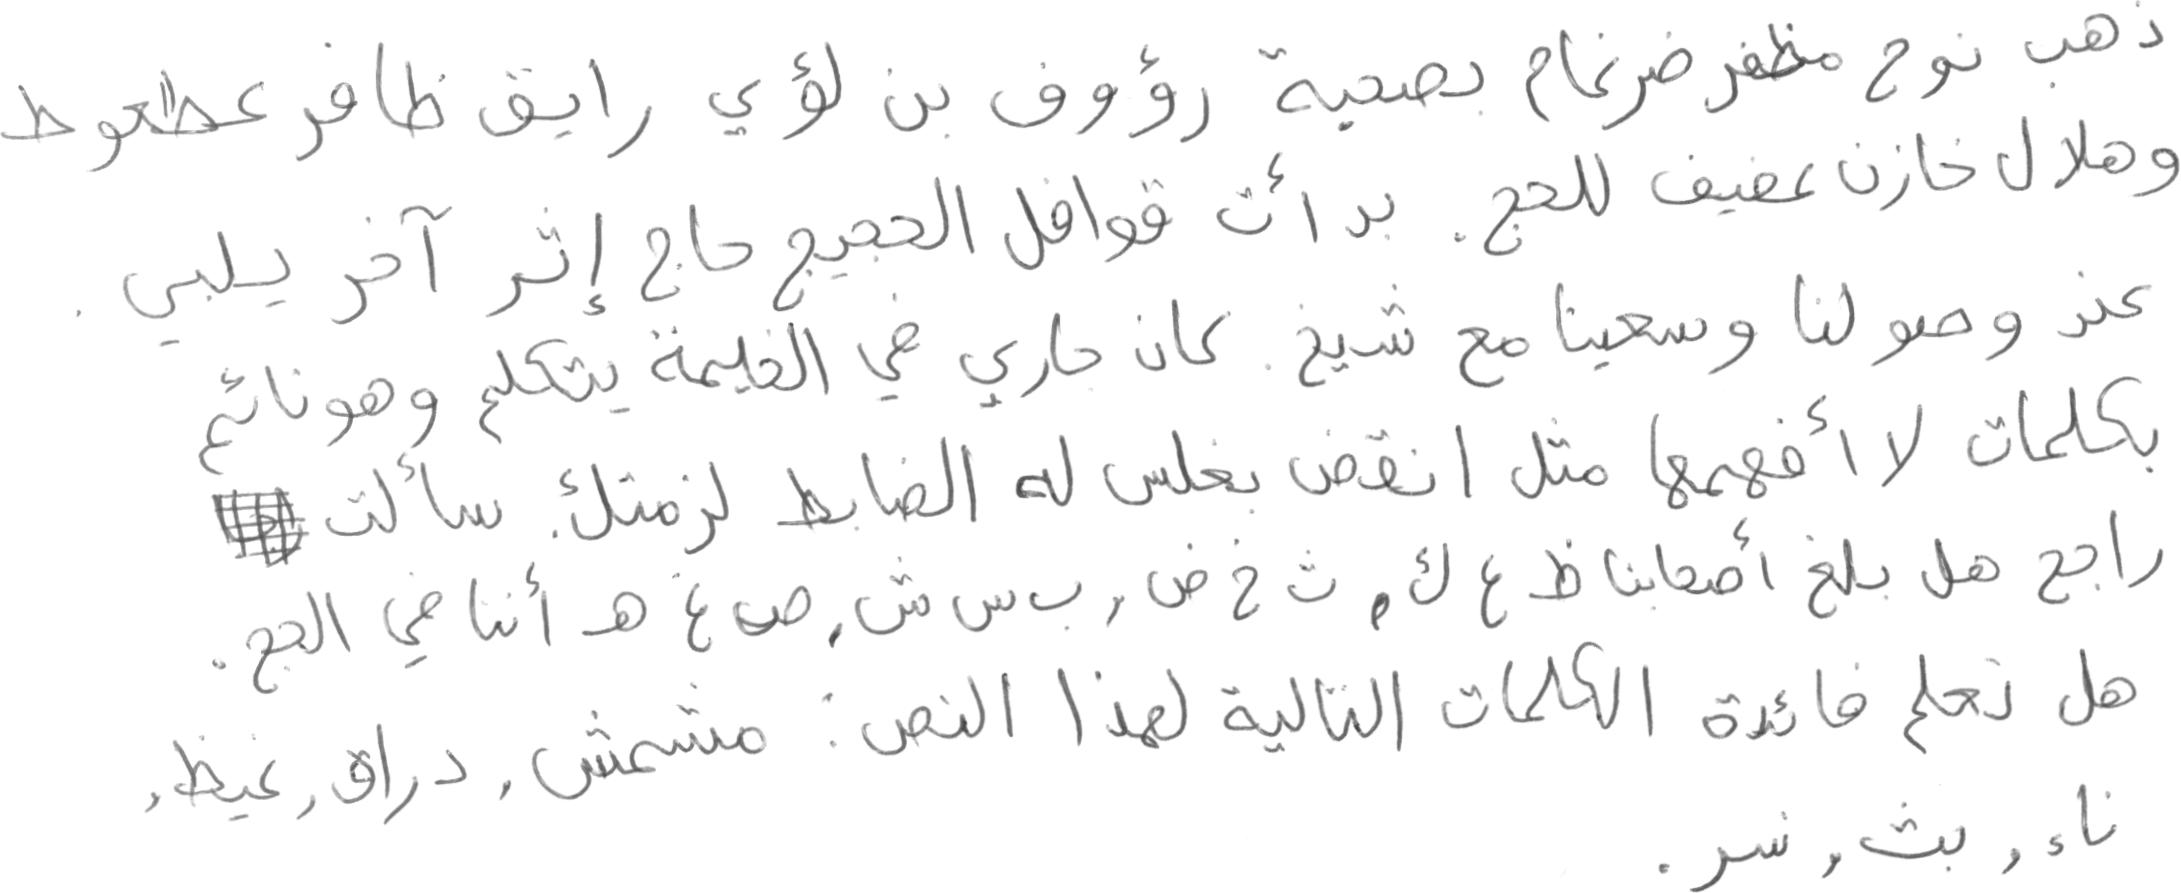 ذهب نوح مظفر ضرغام بصحبة رؤوف بن لؤي رايق ظافر عطعوط
وهلال خازن عفيف للحج. بدأت قوافل الحجيج حاج إثر آخر يلبي.
عند وصولنا وسعينا مع شيخ. كان جاري في الخليمة يتكلم وهو نائم
بكلمات لا أفهمها مثل انقض بغلس له الضابط لزمتك. سألت
راجح هل بلغ أصحابنا ظ ع ك, ث خ ض, ب س ش, ص غ هـ أننا في الحج.
هل تعلم فائدة الكلمات التالية لهذا النص: مشمش, دراق, غيظ,
ناء, بث, نسر.